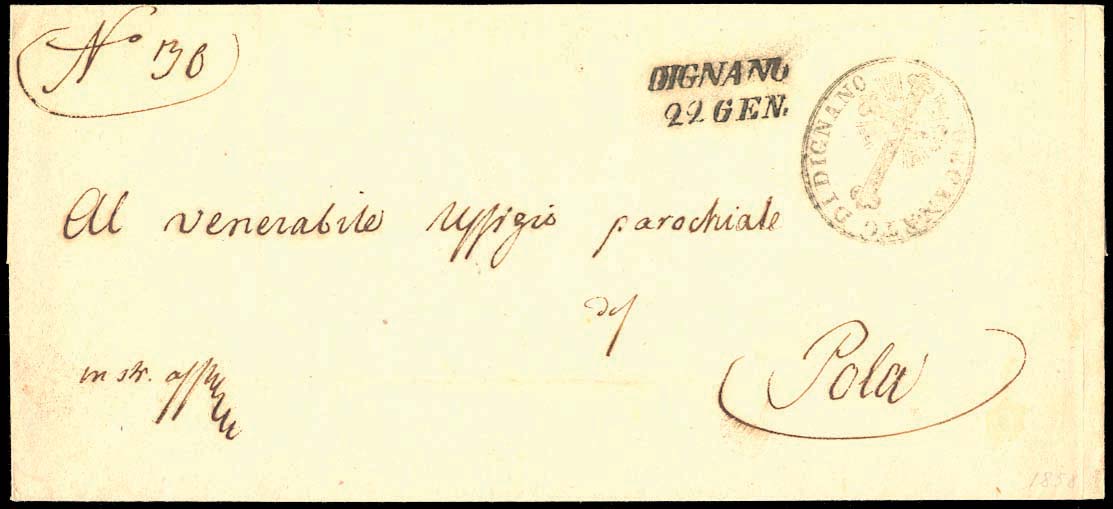 No 36
DIGNANO
22 GEN.
DI DIGNANO
Al venerabile Uffizio parochiale
di
Pola
1858